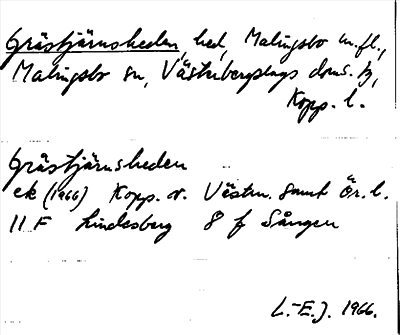 Grästjärnsheden, hed, Malingsbo m.fl.,
Malingsbo sn, Västerbergslags doms.
Kopp. l.
Grästjärnsheden
ek (1966) Kopp. o. Västm. samt Ör. l.
11 F Lindesberg 8 f Sången
L.-E.J. 1966.